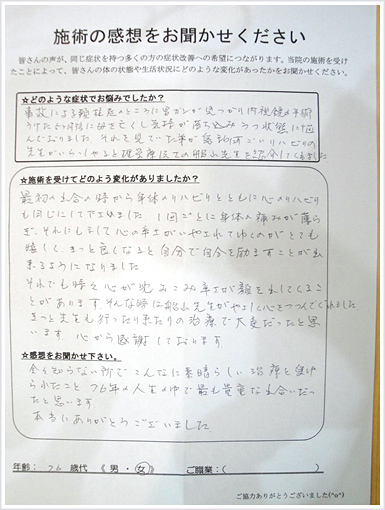 施術の感想をお聞かせください
皆さんの声が、同じ症状を持つ多くの方の症状改善への希望につながります。当院の施術を受け
たことによって、皆さんの体の状態や生活状況にどのような変化があったかをお聞かせください。
☆どのような症状でお悩みでしたか?
事故による頚椎症のところに胃ガンが見つかり内視鏡の手術
うけた 母を亡くし気持が落ち込みうつ状態で悩
んでおりました それを見ていた 腕のすごいリハビリの
先生がいらっしゃると 先生を紹介してくれました
☆施術を受けてどのよう変化がありましたか?
最初の出会の時から身体のリハビリとともに心のリハビリ
も同じにして下さいました 1回ごとに身体の痛みが薄ら
ぎ、それにもまして心の辛さがいやされてゆくのがとても
嬉しく、きっと良くなると自分で自分を励ますことが出
来るようになりました
それでも時々心が沈みこみ辛さが顔を出してくるこ
とがあります そんな時は 先生がやさしく心をつつんでくれました
きっと先生も行ったり来たりの治療で大変だったと思
います 心から感謝しております
☆感想をお聞かせ下さい。
全く知らない所でこんなに素晴らしい治療を受け
られたこと 76年の人生の中で最も貴重な出会いだっ
たと思います
本当にありがとうございました
年齢: 76 歳代 《 男 ・ 女 》 ご職業:( )
ご協力ありがとうございました(^o^)